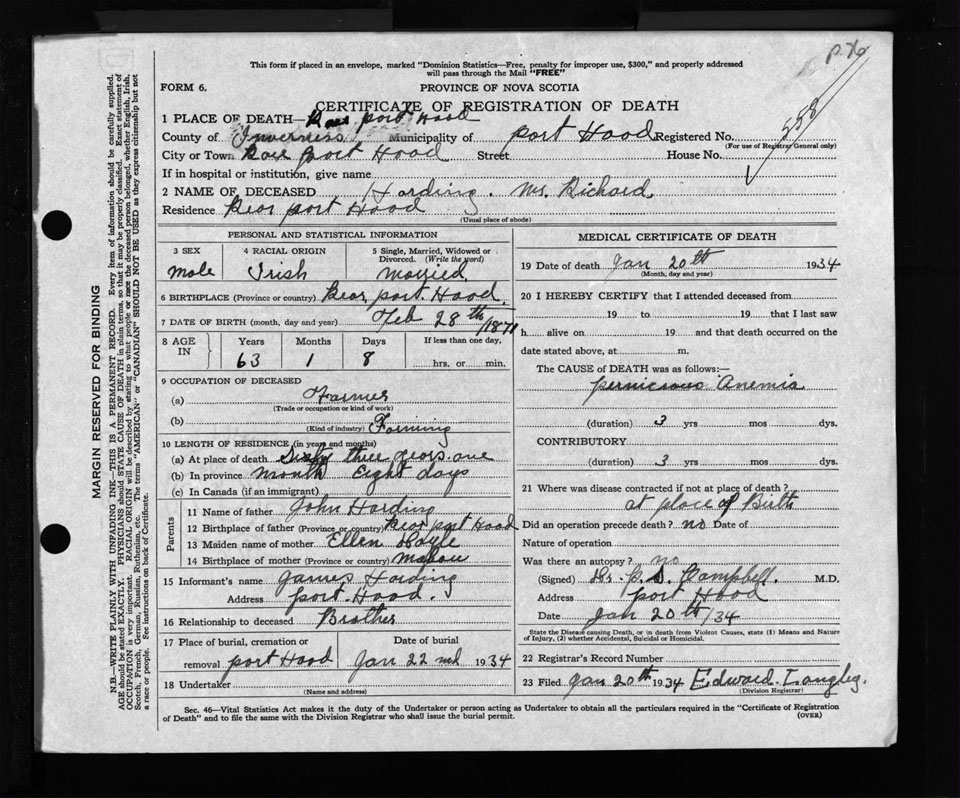 P. 76
This form if placed in an envelope, marked "Dominion Statistics—Free, penalty for improper use, $300," and properly addressed
will pass through the Mail "FREE"
FORM 6.
PROVINCE OF NOVA SCOTIA
CERTIFICATE OF REGISTRATION OF DEATH
1 PLACE OF DEATH— Rear port Hood
County of Inverness Municipality of port Hood Registered No.
(For use of Registrar General only)
City or Town Rear port Hood Street House No.
If in hospital or institution, give name
2 NAME OF DECEASED Harding. Mr. Richard
Residence Rear port Hood
(Usual place of abode)
PERSONAL AND STATISTICAL INFORMATION
3 SEX 4 RACIAL ORIGIN 5 Single, Married, Widowed or
Divorced. (Write the word)
male Irish married
6 BIRTHPLACE (Province or country) Rear port Hood
7 DATE OF BIRTH (month, day and year) Feb 28th 1871
8 AGE IN Years Months Days If less than one day,
63 1 8 hrs. or min.
9 OCCUPATION OF DECEASED
(a) Farmer
(Trade or occupation or kind of work)
(b) Farming
(Kind of industry)
10 LENGTH OF RESIDENCE (in years and months)
(a) At place of death Sixty three years one
(b) In province month Eight days
(c) In Canada (if an immigrant)
Parents
11 Name of father John Harding
12 Birthplace of father (Province or country) Rear port Hood
13 Maiden name of mother Ellen Doyle
14 Birthplace of mother (Province or country) Mabou
15 Informant's name James Harding
Address port Hood.
16 Relationship to deceased Brother
17 Place of burial, cremation or Date of burial
removal port Hood Jan 22nd 1934
18 Undertaker
(Name and address)
MEDICAL CERTIFICATE OF DEATH
19 Date of death Jan 20th 1934
(Month, day and year)
20 I HEREBY CERTIFY that I attended deceased from
19 to 19 that I last saw
h alive on 19 and that death occurred on the
date stated above, at m.
The CAUSE of DEATH was as follows:—
pernicious Anemia
(duration) 3 yrs mos dys.
CONTRIBUTORY
(duration) 3 yrs mos dys.
21 Where was disease contracted if not at place of death?
at place of Birth
Did an operation precede death? no Date of
Nature of operation
Was there an autopsy? no
(Signed) Dr. Campbell. M.D.
Address port Hood
Date Jan 20th/34
State the Disease causing Death, or in death from Violent Causes, state (1) Means and Nature
of Injury, (2) whether Accidental, Suicidal or Homicidal.
22 Registrar's Record Number
23 Filed Jan 20th 1934 Edward Langley.
(Division Registrar)
Sec. 46—Vital Statistics Act makes it the duty of the Undertaker or person acting as Undertaker to obtain all the particulars required in the "Certificate of Registration
of Death" and to file the same with the Division Registrar who shall issue the burial permit.
(OVER)
MARGIN RESERVED FOR BINDING
N.B.—WRITE PLAINLY WITH UNFADING INK—THIS IS A PERMANENT RECORD. Every item of information should be carefully supplied.
AGE should be stated EXACTLY. PHYSICIANS should STATE CAUSE OF DEATH in plain terms, so that it may be properly classified. Exact statement of
OCCUPATION is very important. RACIAL ORIGIN will be described by stating to what people or race the deceased person belonged, whether English, Irish,
Scotch, French, German, Russian, Ruthenian, etc. The terms "AMERICAN" or "CANADIAN" SHOULD NOT BE USED as they express citizenship but not
a race or people. See instructions on back of Certificate.